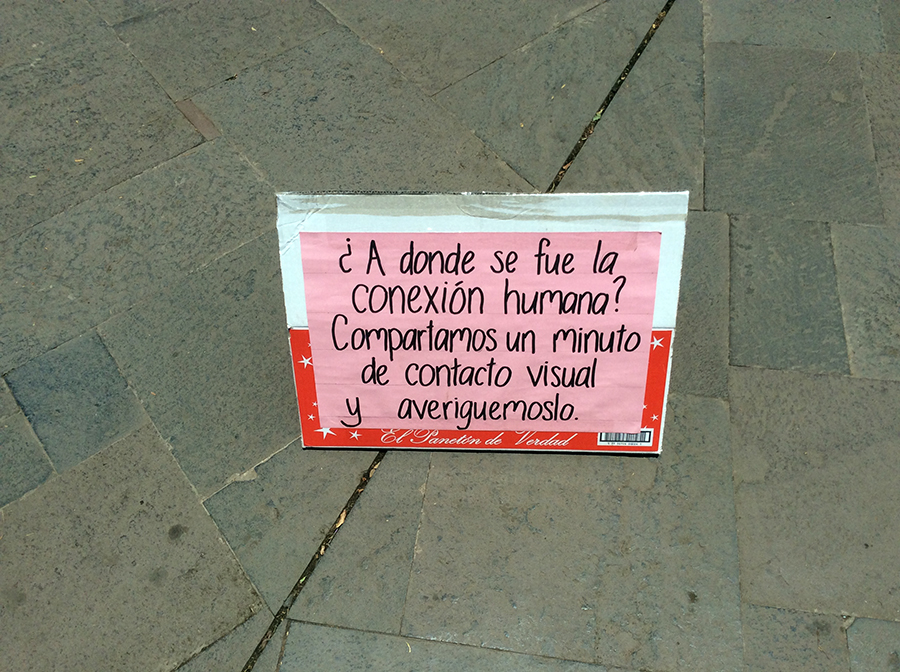 ¿A donde se fue la
conexión humana?
Compartamos un minuto
de contacto visual
y averiguemoslo.
El Panetón de Verdad